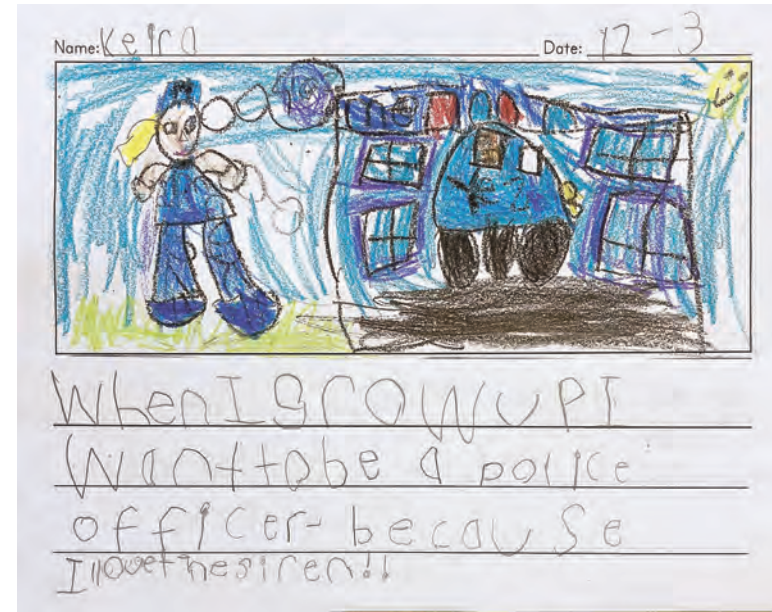 Name: Keira Date: 12-3
When I grow up I
want to be a police
officer because
I love the siren!!